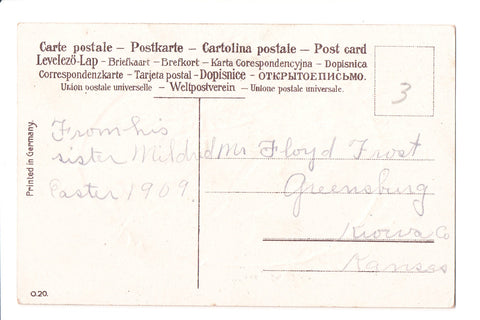 Carte postale – Postkarte – Cartolina postale – Post card
Levelező-Lap – Briefkaart – Brefkort – Karta Corespondencyjna – Dopisnica
Correspondenzkarte – Tarjeta postal – Dopisnice – ОТКРЫТОЕПИСЬМО.
Union postale universelle – Weltpostverein – Unione postale universale.
3
Printed in Germany.
From his
sister Mildred
Easter 1909.
Mr Floyd Frost
Greensburg
Kiowa Co
Kansas
O.20.